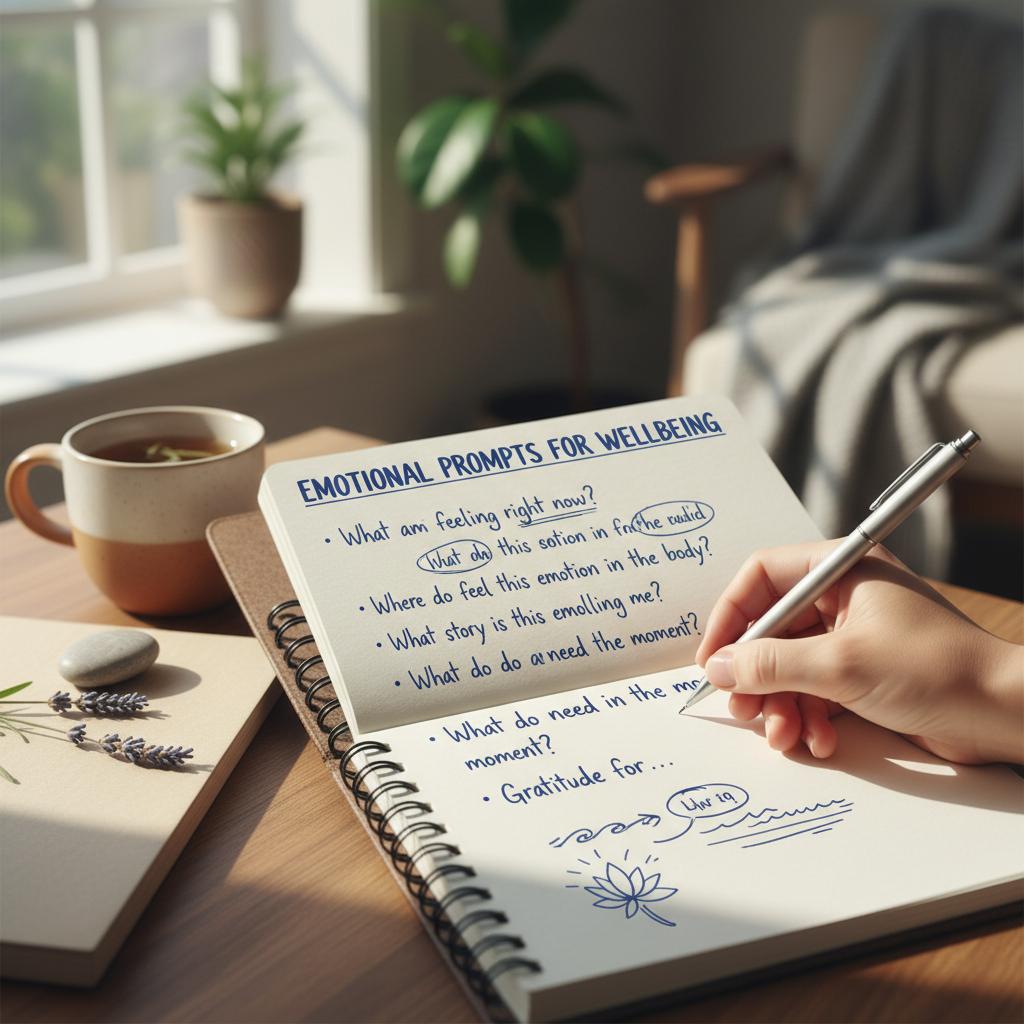 EMOTIONAL PROMPTS FOR WELLBEING
• What am feeling right now?
What this sotion in
• Where do feel this emotion in the body?
• What story is this emolling me?
• What do do need the moment?
• What do need in the mo
moment?
• Gratitude for ...